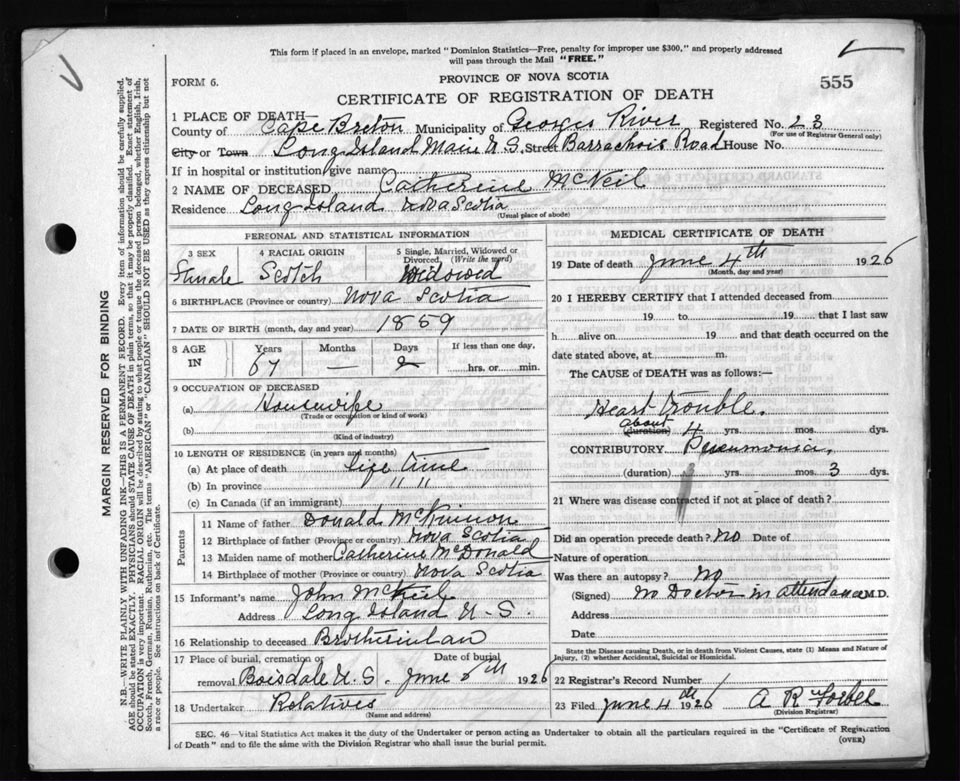 This form if placed in an envelope, marked "Dominion Statistics—Free, penalty for improper use $300," and properly addressed
will pass through the Mail "FREE."
FORM 6.
PROVINCE OF NOVA SCOTIA
555
CERTIFICATE OF REGISTRATION OF DEATH
1 PLACE OF DEATH
County of Cape Breton Municipality of Georges River Registered No. 23
(For use of Registrar General only)
City or Town Long Island Main N.S. Street Barrachois Road House No.
If in hospital or institution give name
2 NAME OF DECEASED Catherine McNeil
Residence Long Island Nova Scotia
(Usual place of abode)
PERSONAL AND STATISTICAL INFORMATION
3 SEX
Female
4 RACIAL ORIGIN
Scotch
5 Single, Married, Widowed or
Divorced, (Write the word)
Widowed
6 BIRTHPLACE (Province or country) Nova Scotia
7 DATE OF BIRTH (month, day and year) 1859
8 AGE
IN
Years
67
Months
—
Days
2
If less than one day,
hrs. or min.
9 OCCUPATION OF DECEASED
(a) Housewife
(Trade or occupation or kind of work)
(b)
(Kind of industry)
10 LENGTH OF RESIDENCE (in years and months)
(a) At place of death life time
(b) In province " "
(c) In Canada (if an immigrant)
Parents
11 Name of father Donald McKinnon
12 Birthplace of father (Province or country) Nova Scotia
13 Maiden name of mother Catherine McDonald
14 Birthplace of mother (Province or country) Nova Scotia
15 Informant's name John McNeil
Address Long Island N.S.
16 Relationship to deceased Brotherinlaw
17 Place of burial, cremation or Date of burial
removal Boisdale N.S. June 6th 1926
18 Undertaker Relatives
(Name and address)
MEDICAL CERTIFICATE OF DEATH
19 Date of death June 4th 1926
(Month, day and year)
20 I HEREBY CERTIFY that I attended deceased from
19 to 19 that I last saw
h alive on 19 and that death occurred on the
date stated above, at m.
The CAUSE of DEATH was as follows:—
Heart trouble.
about
(duration) 4 yrs. mos. dys.
CONTRIBUTORY Pneumonia
(duration) yrs. mos. 3 dys.
21 Where was disease contracted if not at place of death?
Did an operation precede death? No Date of
Nature of operation
Was there an autopsy? No
(Signed) No Doctor in attendance M.D.
Address
Date
State the Disease causing Death, or in death from Violent Causes, state (1) Means and Nature of
Injury, (2) whether Accidental, Suicidal or Homicidal.
22 Registrar's Record Number
23 Filed June 4th 1926
(Division Registrar)
SEC. 46—Vital Statistics Act makes it the duty of the Undertaker or person acting as Undertaker to obtain all the particulars required in the "Certificate of Registration
of Death" and to file the same with the Division Registrar who shall issue the burial permit.
(OVER)
MARGIN RESERVED FOR BINDING
N.B.—WRITE PLAINLY WITH UNFADING INK—THIS IS A PERMANENT RECORD. Every item of information should be carefully supplied.
AGE should be stated EXACTLY. PHYSICIANS should STATE CAUSE OF DEATH in plain terms, so that it may be properly classified. Exact statement of
OCCUPATION is very important. RACIAL ORIGIN will be described by stating to what people or tongue the deceased person belonged, whether English, Irish,
Scotch, French, German, Russian, Ruthenian, etc. The terms "AMERICAN" or "CANADIAN" SHOULD NOT BE USED as they express citizenship but not
a race or people. See instructions on back of Certificate.